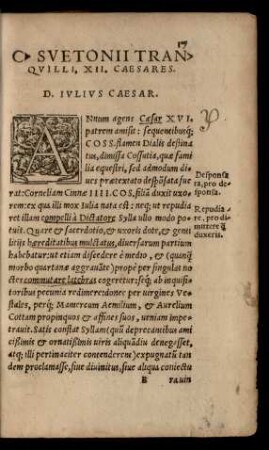 17
C. SVETONII TRAN
QVILLI, XII. CAESARES.
D. IVLIVS CAESAR.
ANnum agens Cæsar XVI.
patrem amisit: sequentibusq;
COSS. flamen Dialis destina
tus, dimissa Cossutia, quæ fami
lia equestri, sed admodum di
ues prætextato desponsata fue
rat: Corneliam Cinnæ IIII. COS. filiã duxit uxo
rem: ex qua illi mox Iulia nata est: neq; ut repudia
ret illam compelli à Dictatore Sylla ullo modo po
tuit. Quare & sacerdotio, & uxoris dote, & gen
litijs hæreditatibus mulctatus, diuersarum partium
habebatur: ut etiam discedere è medio, & (quanq̃
morbo quartanæ aggrauãte) propè per singulas no
ctes commutare latebras cogeretur: seq; ab inquisi-
toribus pecunia redimeret: donec per uirgines Ve
stales, perq; Mamercum Aemilium, & Aurelium
Cottam propinquos & affines suos, ueniam impe
trauit. Satis constat Syllam (quũ deprecantibus ami
cissimis & ornatissimis uiris aliquãdiu denegasset,
atq; illi pertinaciter contenderent) expugnatũ tan
dem proclamasse, siue diuinitus, siue aliqua coniectu
B
Desponsa
ta, pro de-
sponsa.
Repudia-
re, pro di-
mittere q̃
duxeris.